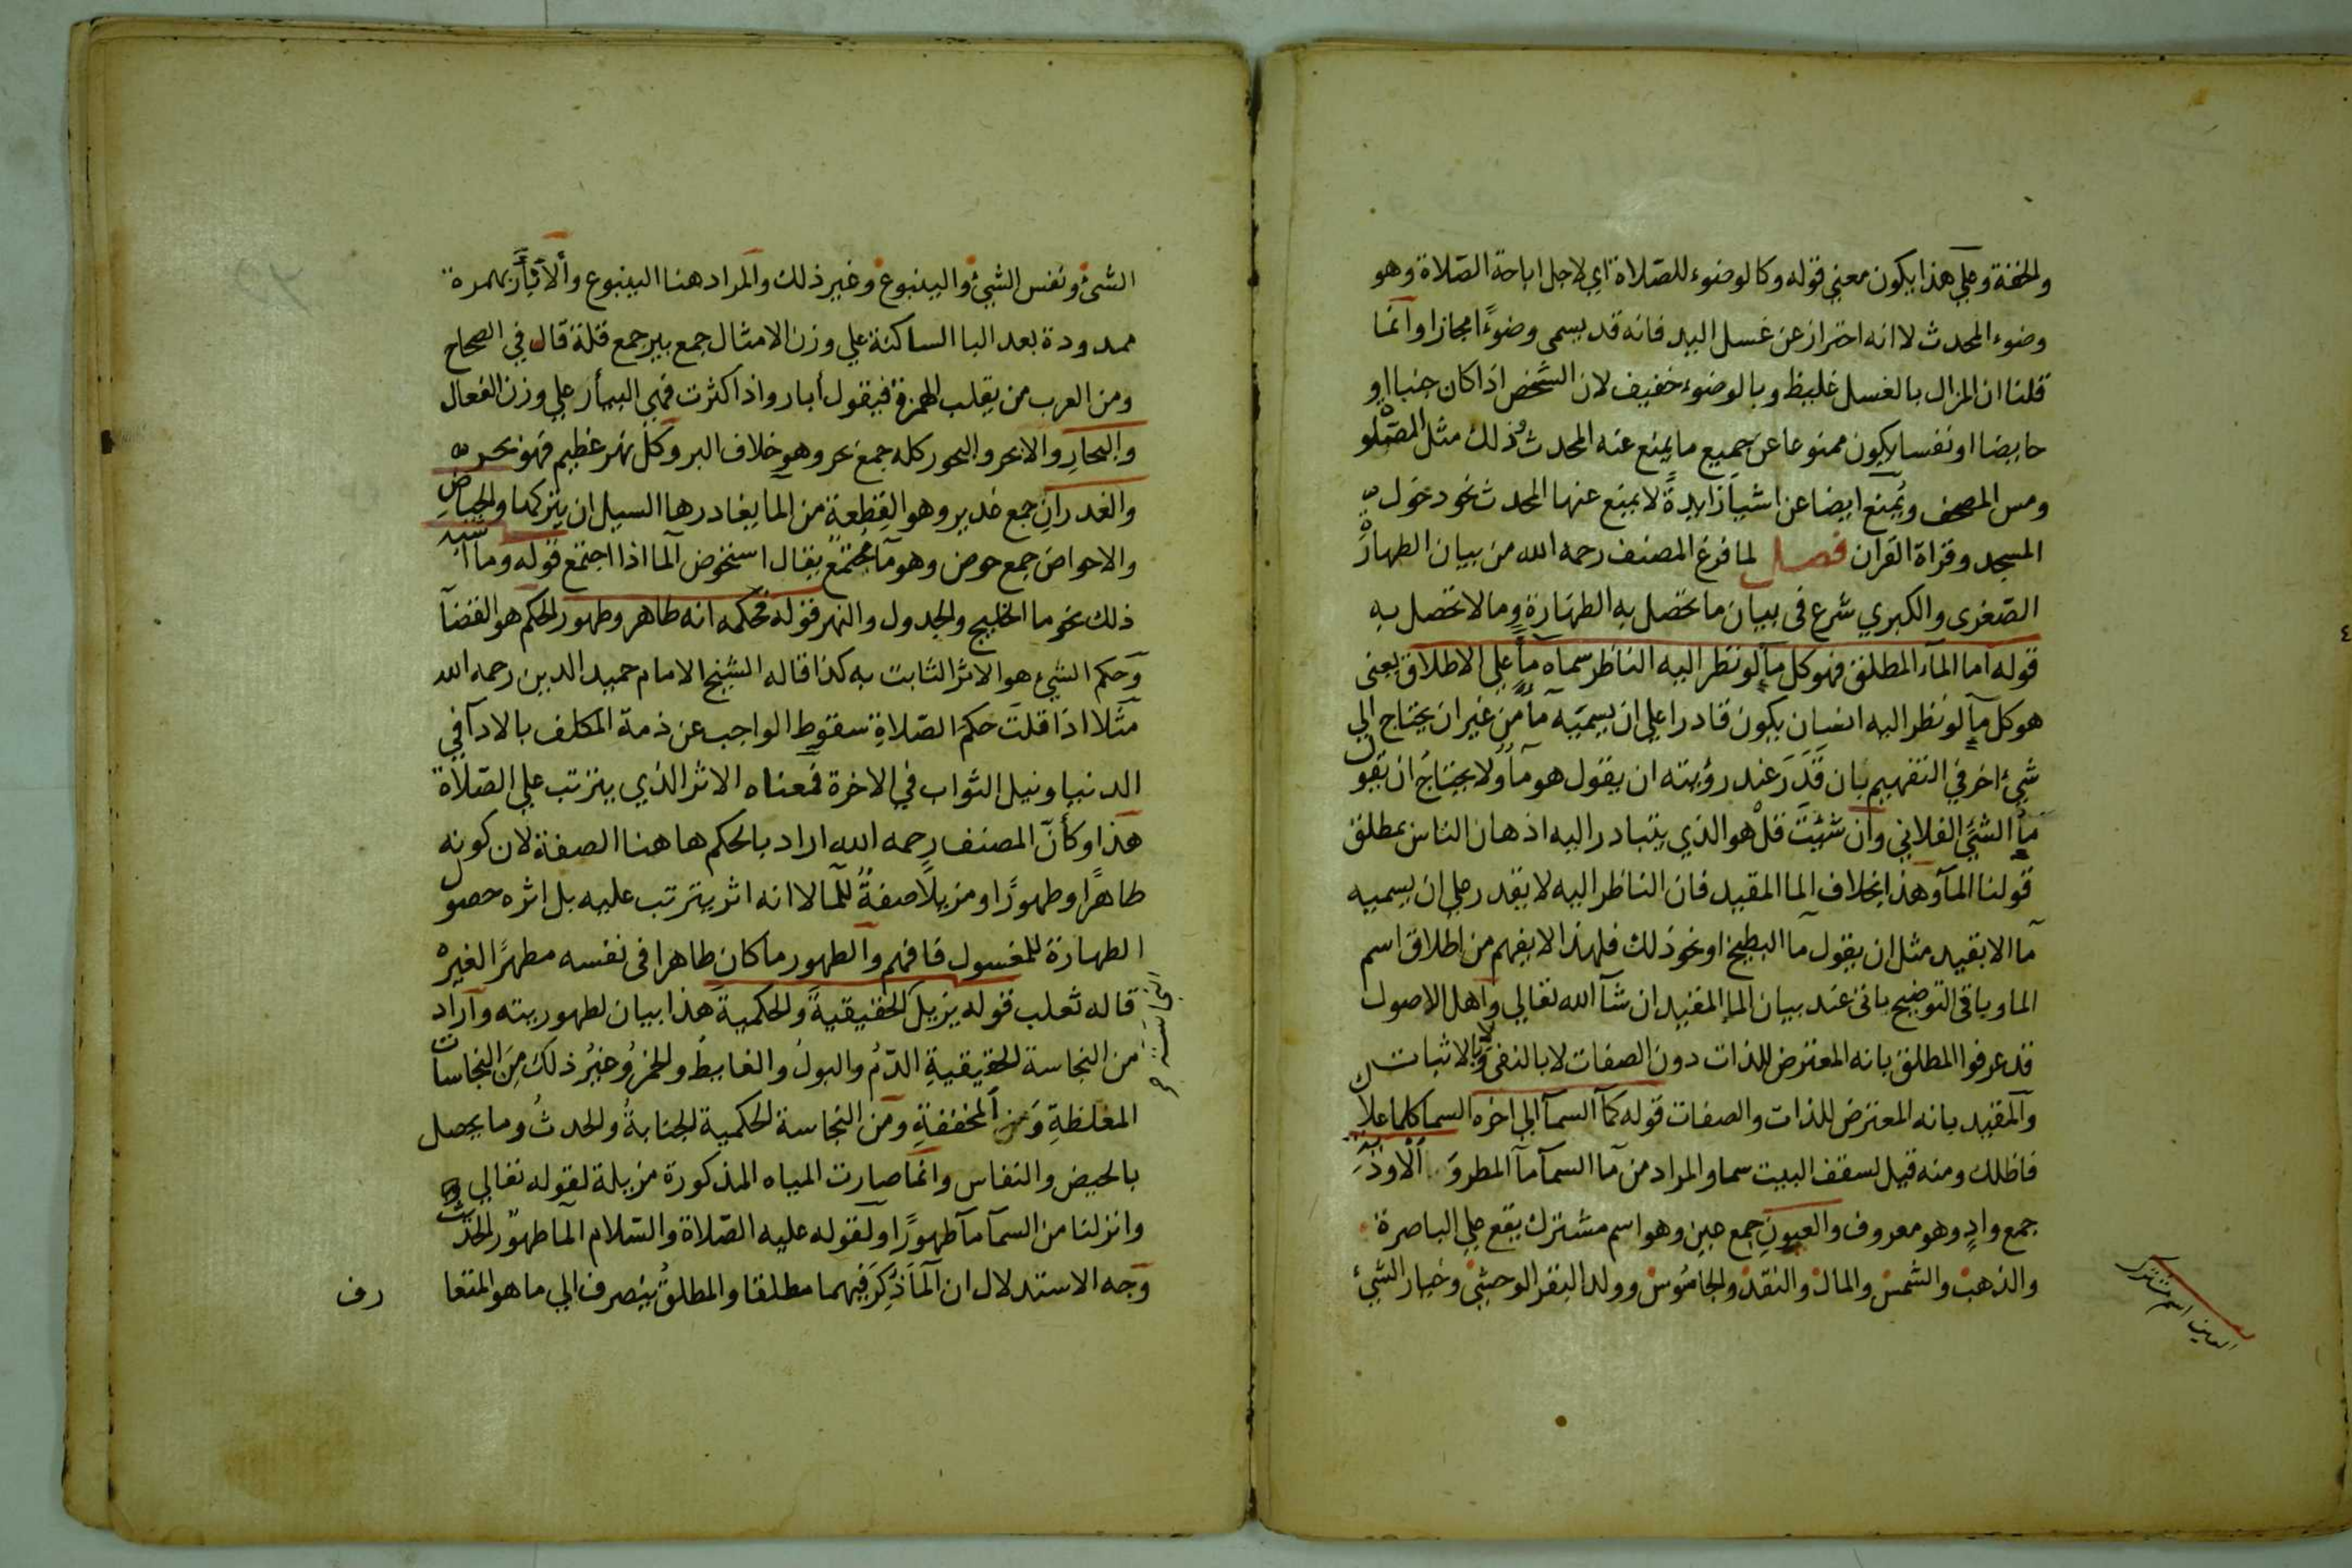 والخفة وعلي هذا يكون معني قوله وكالوضوء للصلاة اي لاجل اباحة الصلاة وهو
وضوء المحدث لا انه احتراز عن غسل اليد فانه قد يسمى وضوءًا مجازا وانما
قلنا ان المزال بالغسل غليظ وبالوضوء خفيف لان الشخص اذا كان جنبا او
حايضا او نفسا يكون ممنوعا عن جميع ما يمنع عنه المحدث وذلك مثل الصلوة
ومس المصحف ويُمنع ايضا عن اشيا زايدةً لا يمنع عنها المحدث نحو دخول
المسجد وقراة القران فصل لما فرغ المصنف رحمه الله من بيان الطهارة
الصغرى والكبري شرع في بيان ما تحصل به الطهارة وما لا تحصل به
قوله اما الماء المطلق فهو كل ما لو نظر اليه الناظر سماه ماً علي الاطلاق يعني
هو كل ما لو نظر اليه انسان يكون قادرا علي ان يسميَه ماً من غير ان يحتاج الي
شيء اخر في التفهيم بان قَدَرَ عند رؤيته ان يقول هو ماء ولا يحتاجُ ان يقول
ماُ الشيَ الفلاني وان شئتَ قلْ هو الذي يتبادر اليه اذهان الناس بمطلق
قولنا المآ وهذا بخلاف الما المقيد فان الناظر اليه لا يقدر علي ان يسميه
مآ الا بقيد مثل ان يقول مآ البطيخ او نحو ذلك فلهذا لا يفهم من اطلاق اسم
الما وباقي التوضيح ياتي عند بيان الما المقيد ان شآ الله تعالي واهل الاصول
قد عرفوا المطلق بانه المعترض للذات دون الصفات لا بالنفي ولا بالاثبات
والمقيد بانه المعترض للذات والصفات قوله كمآ السمآ الي اخره السما كلما علاك
فاظلك ومنه قيل لسقف البيت سما والمراد من مآ السمآ مآ المطر و الاودية
جمع وادٍ وهو معروف والعيون جمع عين وهو اسم مشترك يقع علي الباصرة
والذهب والشمس والمال والنقد والجاموس وولد البقر الوحشي وخيار الشيء
العين اسم مشترك
الشئ ونفس الشيئ والينبوع وغير ذلك والمراد هنا الينبوع والآبار بهمزة
ممدودة بعد البا الساكنة علي وزن الامثال جمع بير جمع قلة قال في الصحاح
ومن العرب من يقلب الهمزة فيقول أبار واذا كثرت فهي البيأر علي وزن الفعال
والبحارِ والابحر والبحور كله جمع بحر وهو خلاف البر وكل نهر عظيم فهو بحر
والغدرانِ جمع غدير وهو القِطعة من الما يغادرها السيل ان يتركها والحياضِ
والاحواض جمع حوض وهو مآ مجتمع يقال استحوض المآ اذا اجتمع قوله وما اشبه
ذلك نحو ما الخليج والجدول والنهر قوله فحكمه انه طاهر وطهور الحكم هو القضآ
وحكم الشيء هو الاثر الثابت به كذا قاله الشيخ الامام حميد الدين رحمه الله
مثلا اذا قلت حكم الصلاةِ سقوط الواجب عن ذمة المكلف بالادآ في
الدنيا ونيل الثواب في الاخرة فمعناه الاثر الذي يترتب علي الصلاة
هذا وكأنّ المصنف رحمه الله اراد بالحكم هاهنا الصفة لان كونه
طاهرًا وطهورًا ومزيلًا صفةٌ للمآ لا انه اثر يترتب عليه بل اثره حصول
الطهارة للمغسول فافهم والطهور ما كان طاهرا في نفسه مطهرًا لغيره
قاله ثعلب قوله يزيل النجاسة الحقيقيةَ والحكميةَ هذا بيان لطهوريته واراد
من النجاسة الحقيقيةِ الدّمُ والبولُ والغايطُ والخمرُ وغيرُ ذلك مِنَ النجاسات
المغلظةِ وَمن المخففةِ ومن النجاسة الحكمية الجنابةُ والحدثُ وما يحصل
بالحيض والنفاس وانما صارت المياه المذكورة مزيلة لقوله تعالي
وانزلنا من السمآ مآ طهورًا ولقوله عليه الصّلاة والسّلام المآ طهورٌ الحديث
وجه الاستدلال ان المآ ذُكِرَ فيهما مطلقا والمطلقُ ينصرف الي ما هو المتعا
رف